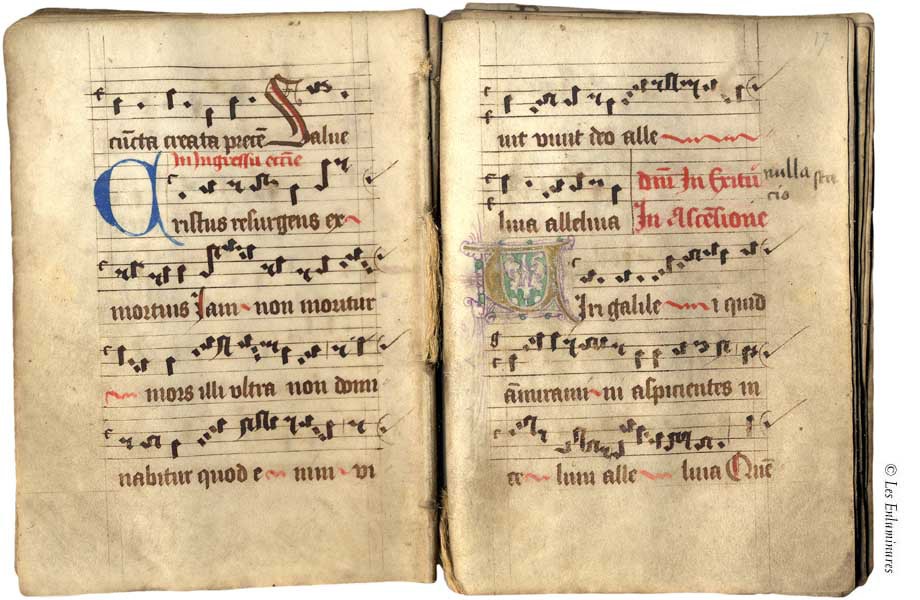 cūcta creata precē Salue
In Ingressu eccīe
Cristus resurgens ex
mortuis Jam non moritur
mors illi vltra non domi
nabitur quod e nim vi
17
uit viuit deo alle
luia alleluia
In Exitū
In Ascēsione
nulla
Uiri galile i quid
āmirami ni aspicientes in
ce lum alle luia Quē
© Les Enluminures